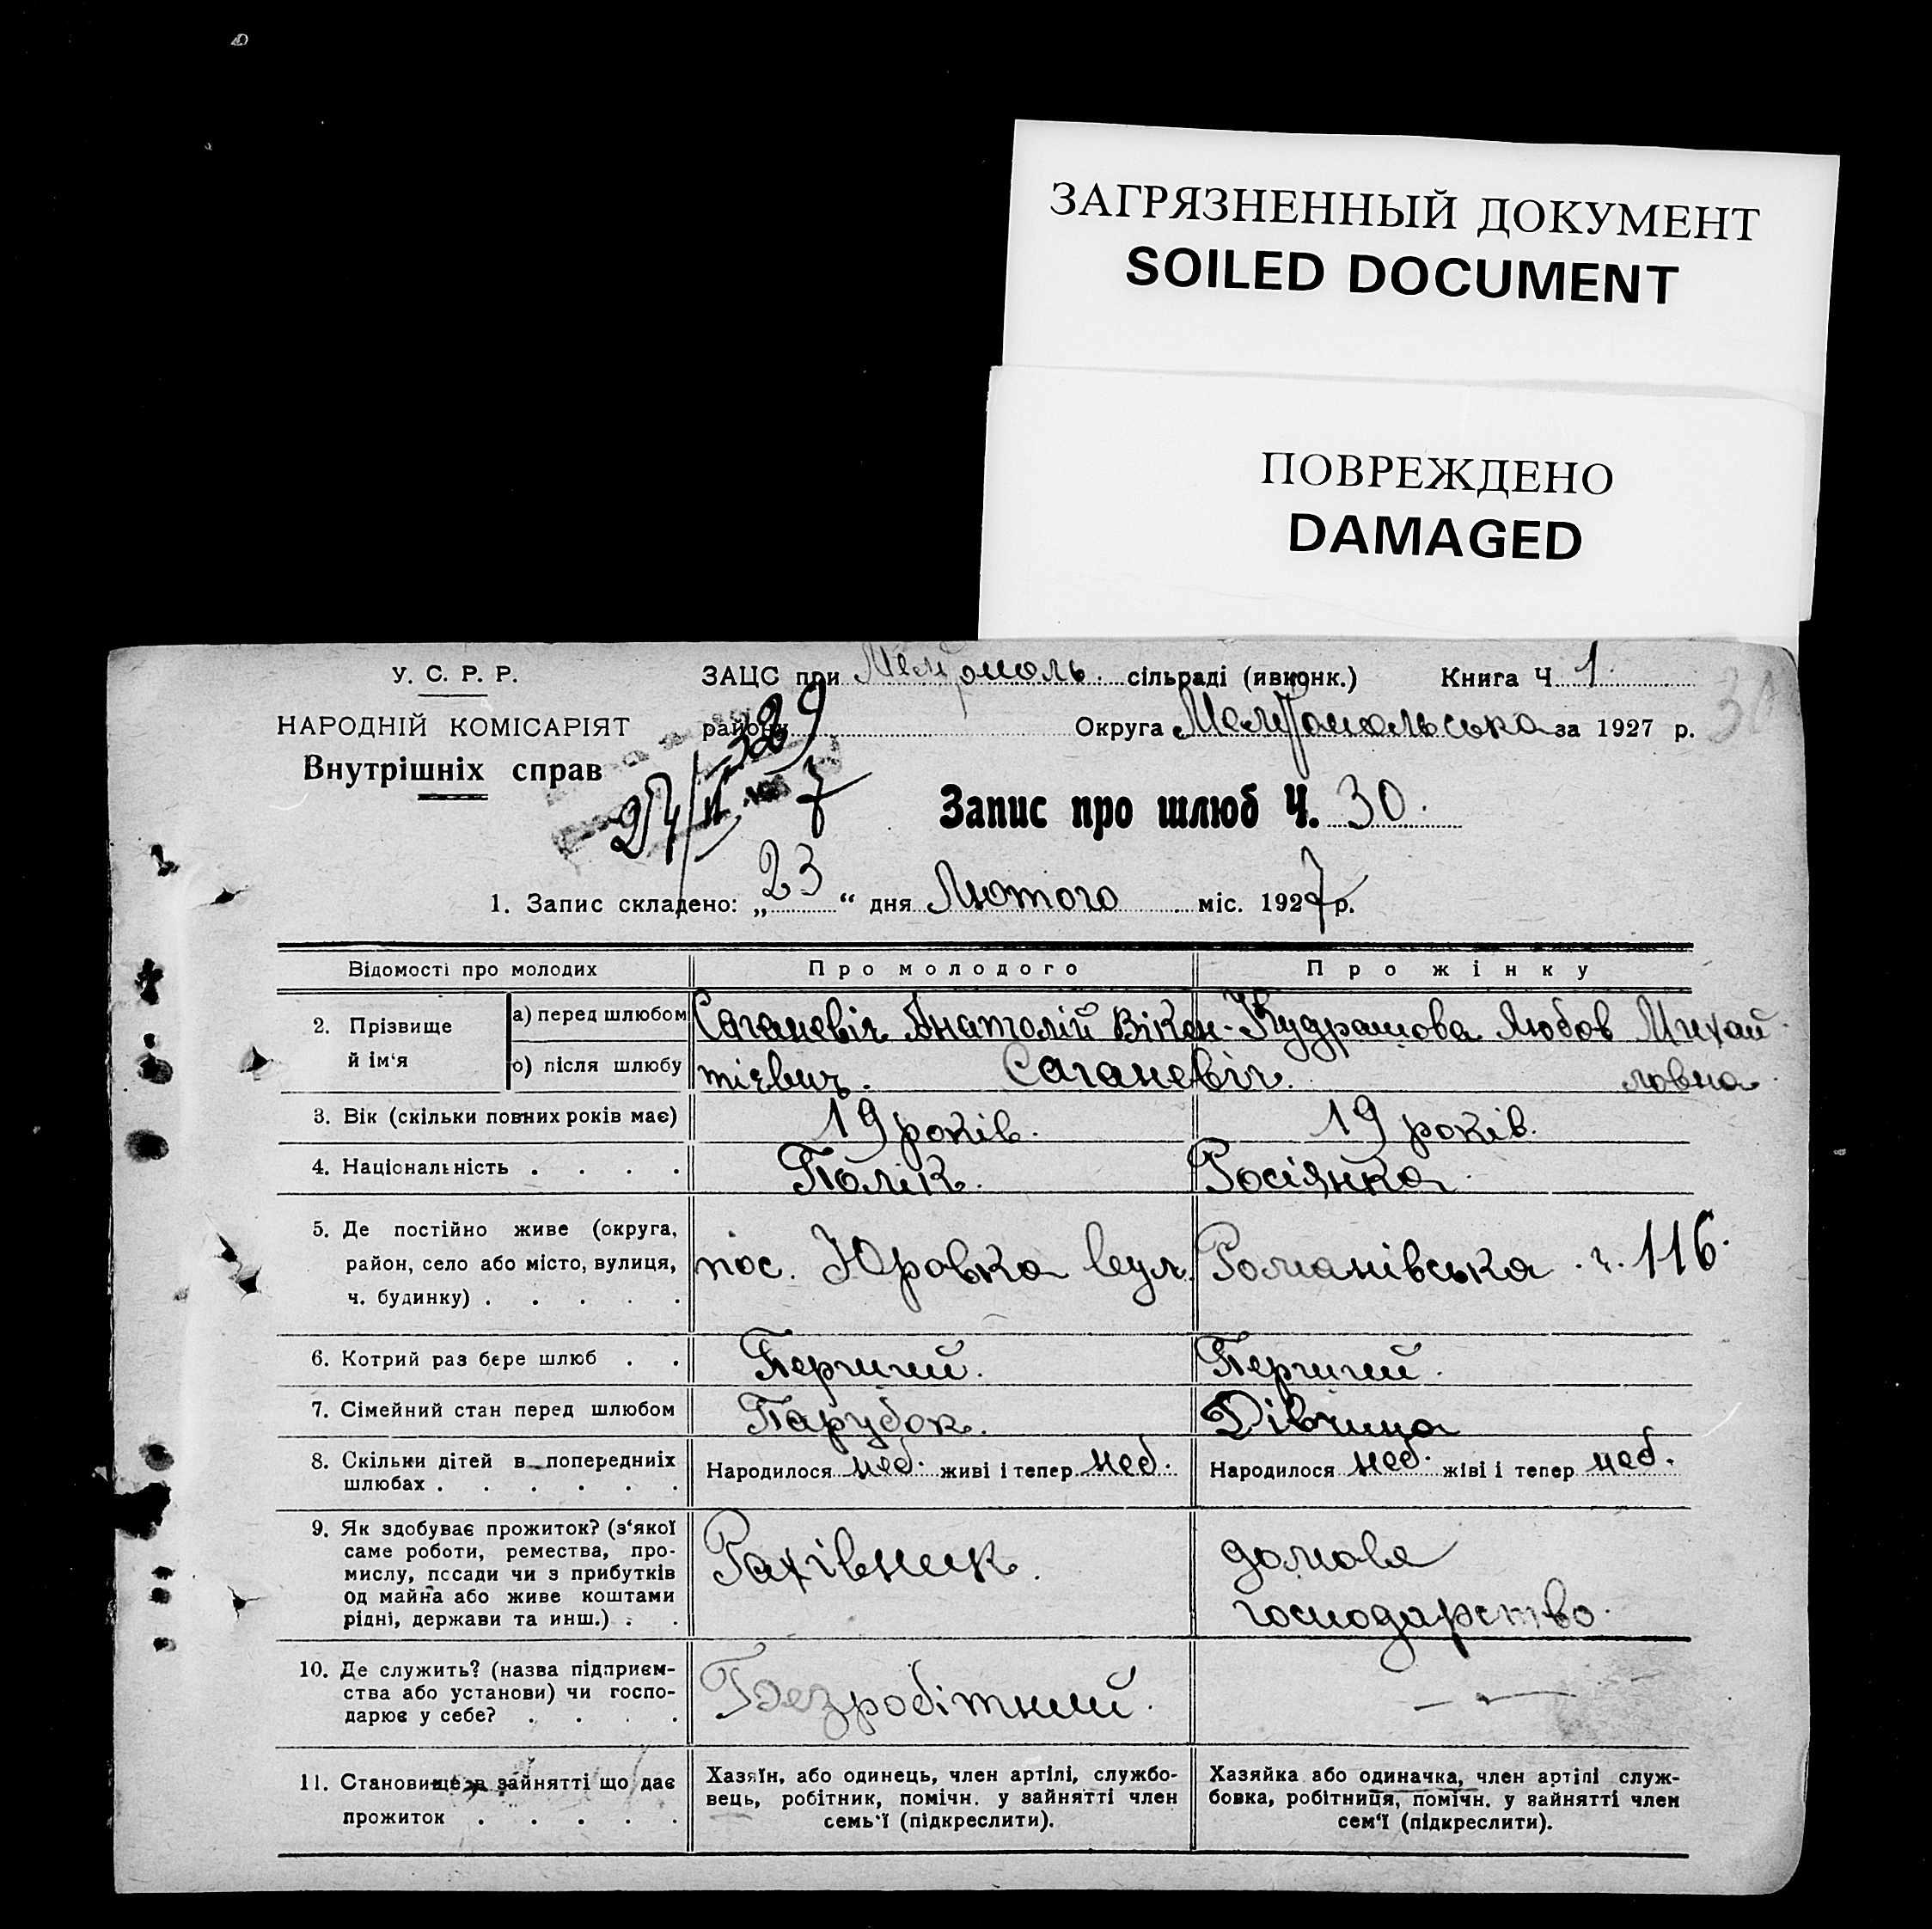 ЗАГРЯЗНЕННЫЙ ДОКУМЕНТ
SOILED DOCUMENT
ПОВРЕЖДЕНО
DAMAGED
У. С. Р. Р.
НАРОДНІЙ КОМІСАРІЯТ
Внутрішніх справ
ЗАЦС при Мелітополь. сільраді (ивконк.) Книга Ч 1.
району Округа Мелітопольська за 1927 р.
30
329
24/II 7
Запис про шлюб Ч. 30.
1. Запис складено: „23“ дня Лютого міс. 1927 р.
Відомості про молодих
Про молодого
Про жінку
2. Прізвище й ім'я
а) перед шлюбом
Саганевіч Анатолій Вікен-
Кудрашова Любов Михай
о) після шлюбу
тієвич. Саганевіч.
ловна
3. Вік (скільки повних років має)
19 років.
19 років.
4. Національність . . . .
Полік.
Росіянка.
5. Де постійно живе (округа,
район, село або місто, вулиця,
ч. будинку) . . . . .
пос. Юровка вул. Романівська. ч. 116.
6. Котрий раз бере шлюб . .
Перший.
Перший.
7. Сімейний стан перед шлюбом
Парубок.
Дівчина
8. Скільки дітей в попередниіх
шлюбах . . . . . .
Народилося неб. живі і тепер неб.
Народилося неб. жіві і тепер неб.
9. Як здобуває прожиток? (з'якої
саме роботи, ремества, про-
мислу, посади чи з прибутків
од майна або живе коштами
рідні, держави та инш.) . .
Рахівник.
домове
господарство.
10. Де служить? (назва підприєм-
ства або установи) чи госпо-
дарює у себе? . . . .
Безробітний.
— —
11. Становище в зайнятті що дає
прожиток . . . . .
Хазяїн, або одинець, член артілі, службо-
вець, робітник, помічн. у зайнятті член
семь'ї (підкреслити).
Хазяйка або одиначка, член артілі служ-
бовка, робітниця, помічн. у зайнятті член
сем'ї (підкреслити).